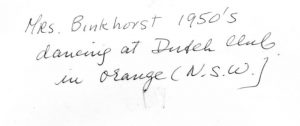 Mrs. Binkhorst 1950's
dancing at Dutch Club
in Orange (N.S.W.]